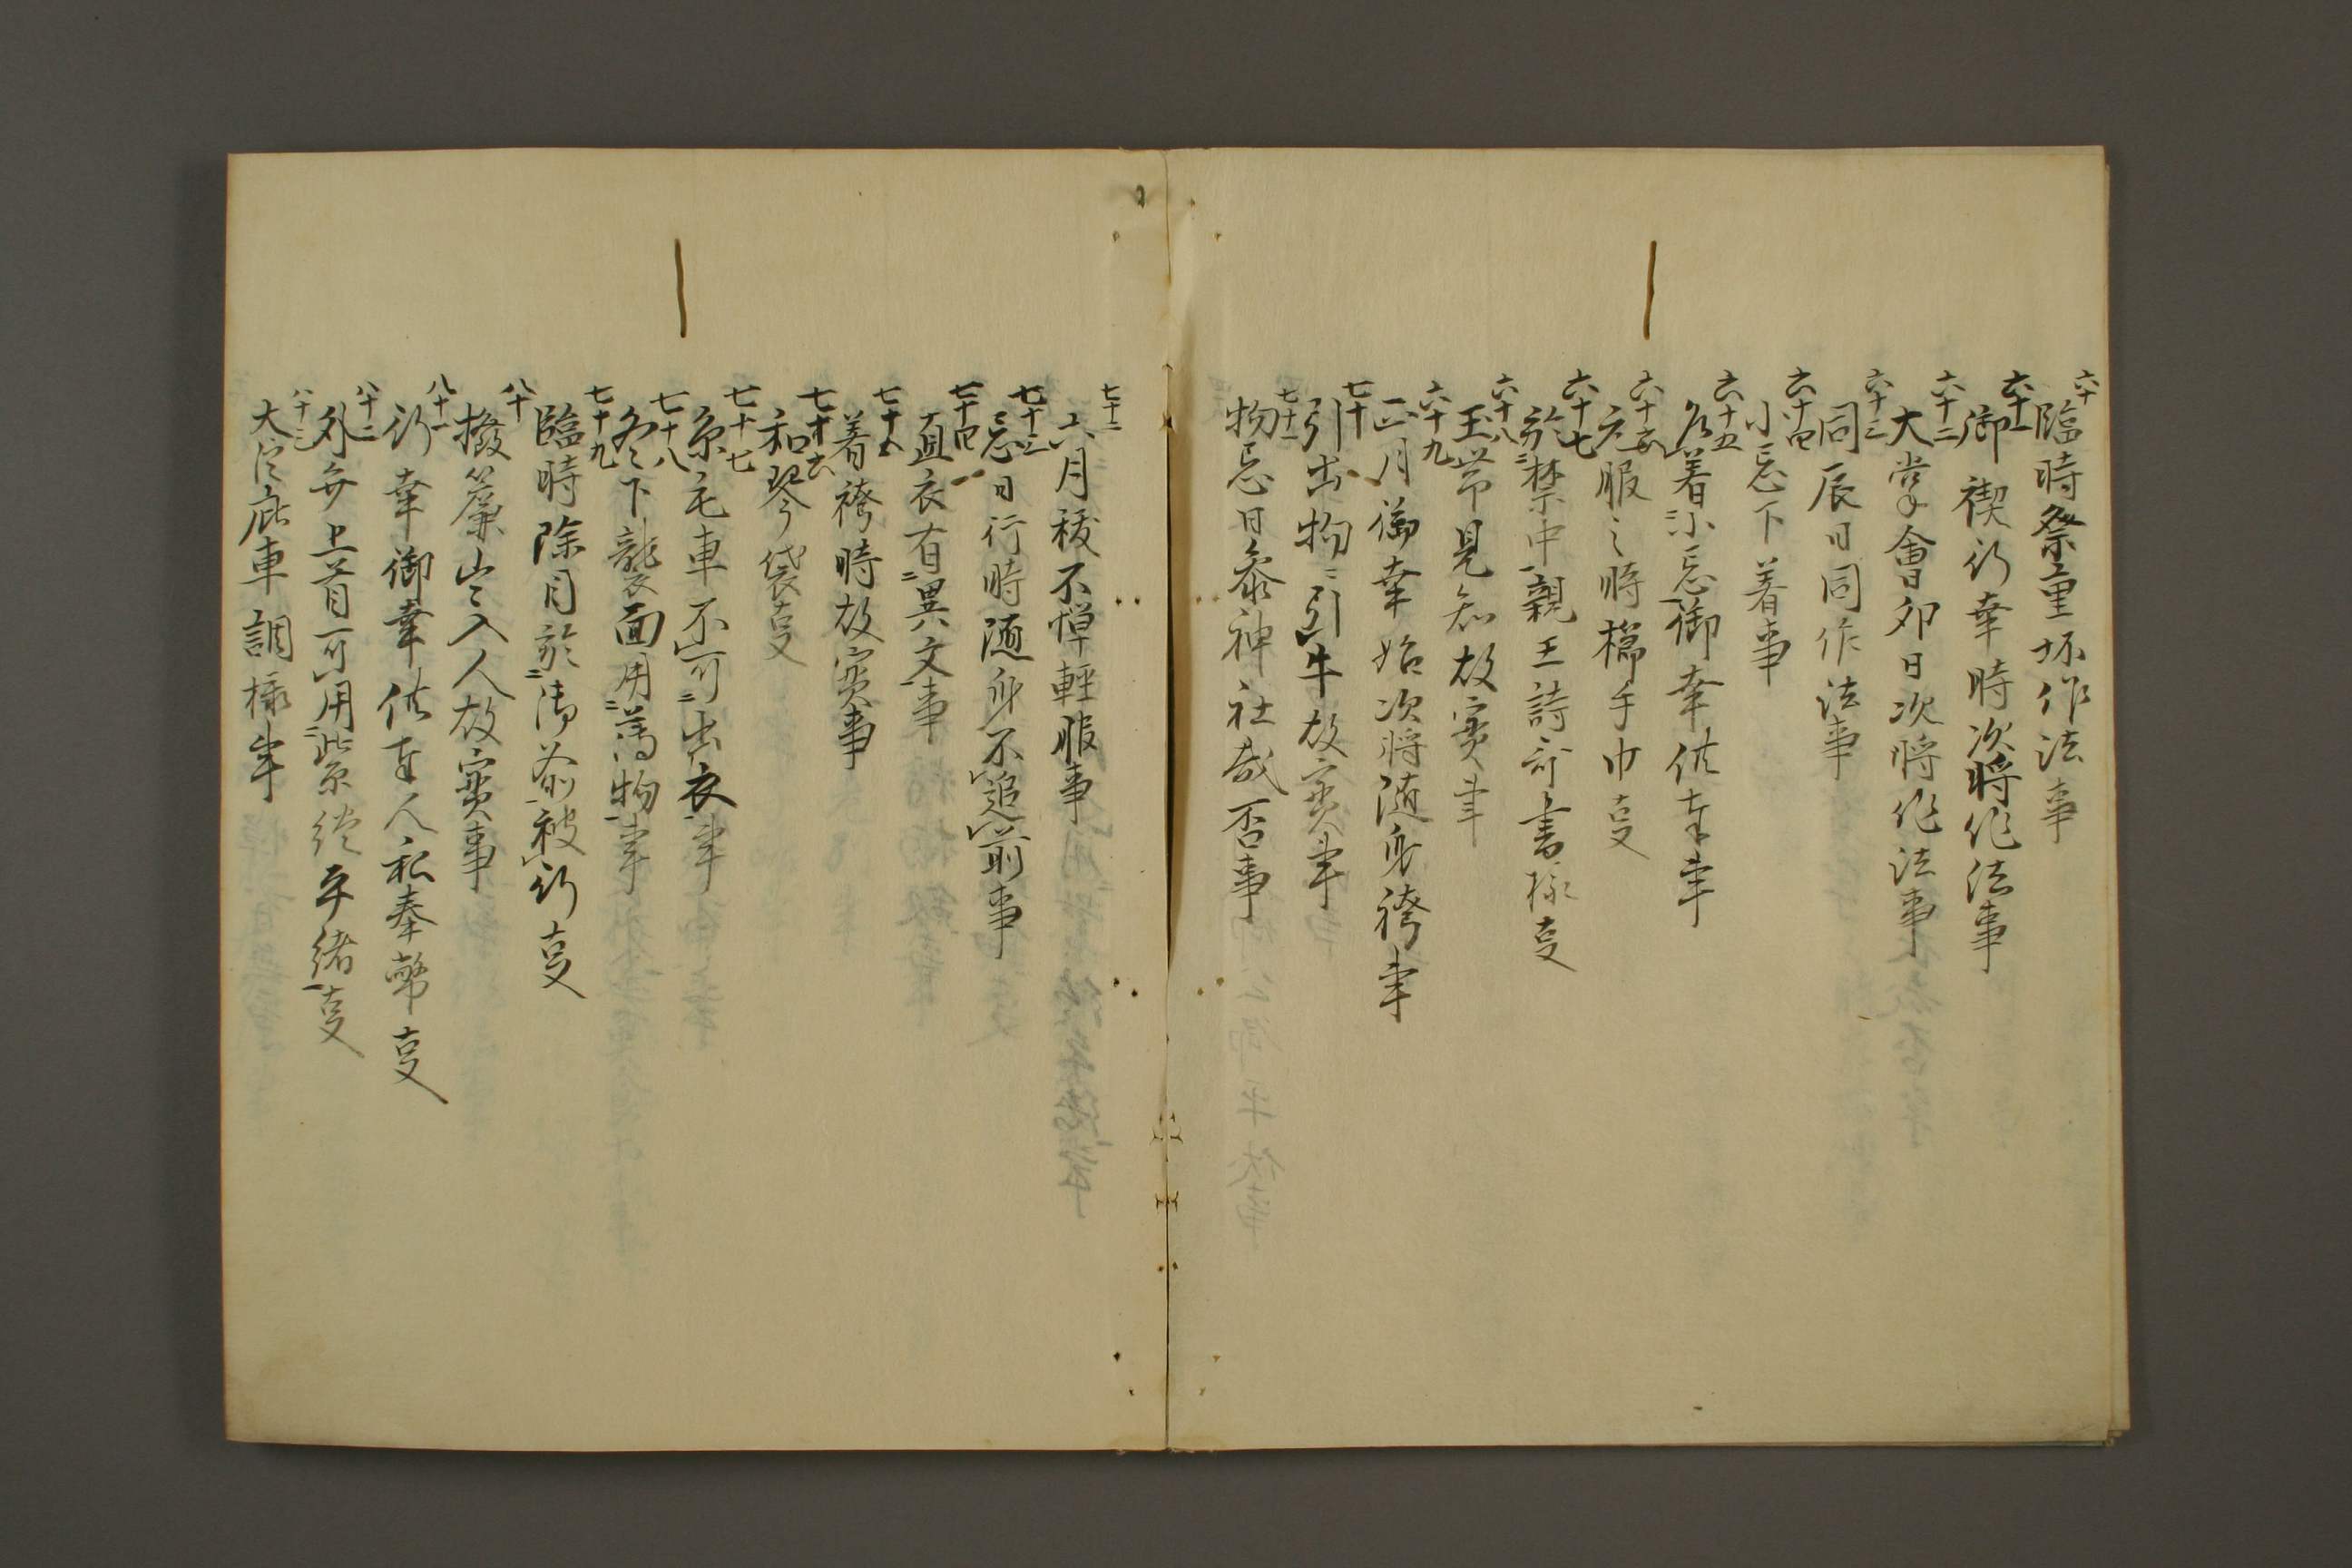 六十
臨時祭重坏作法事
六十一
御禊行幸時次将作法事
六十二
大嘗會卯日次将作法事
六十三
同辰日同作法事
六十四
小忌下着事
六十五
着小忌御幸供奉事
六十六
元服之時櫛手巾事
六十七
於禁中親王詩哥書様事
六十八
玉帯見知故実事
六十九
正月御幸始次将随身袴事
七十
引出物ニ引牛故実事
七十一
物忌日参神社哉否事
七十二
六月祓不憚軽服事
七十三
忌日行時随身不追前事
七十四
直衣有異文事
七十五
着袴時故実事
七十六
和琴袋事
七十七
糸毛車不可出衣事
七十八
冬下襲面用薄物事
七十九
臨時除目於御前被行事
八十
撥簾出入人故実事
八十一
行幸御幸供奉人私奉幣事
八十二
外弁上首可用紫緂平緒事
八十三
大臣庇車調様事